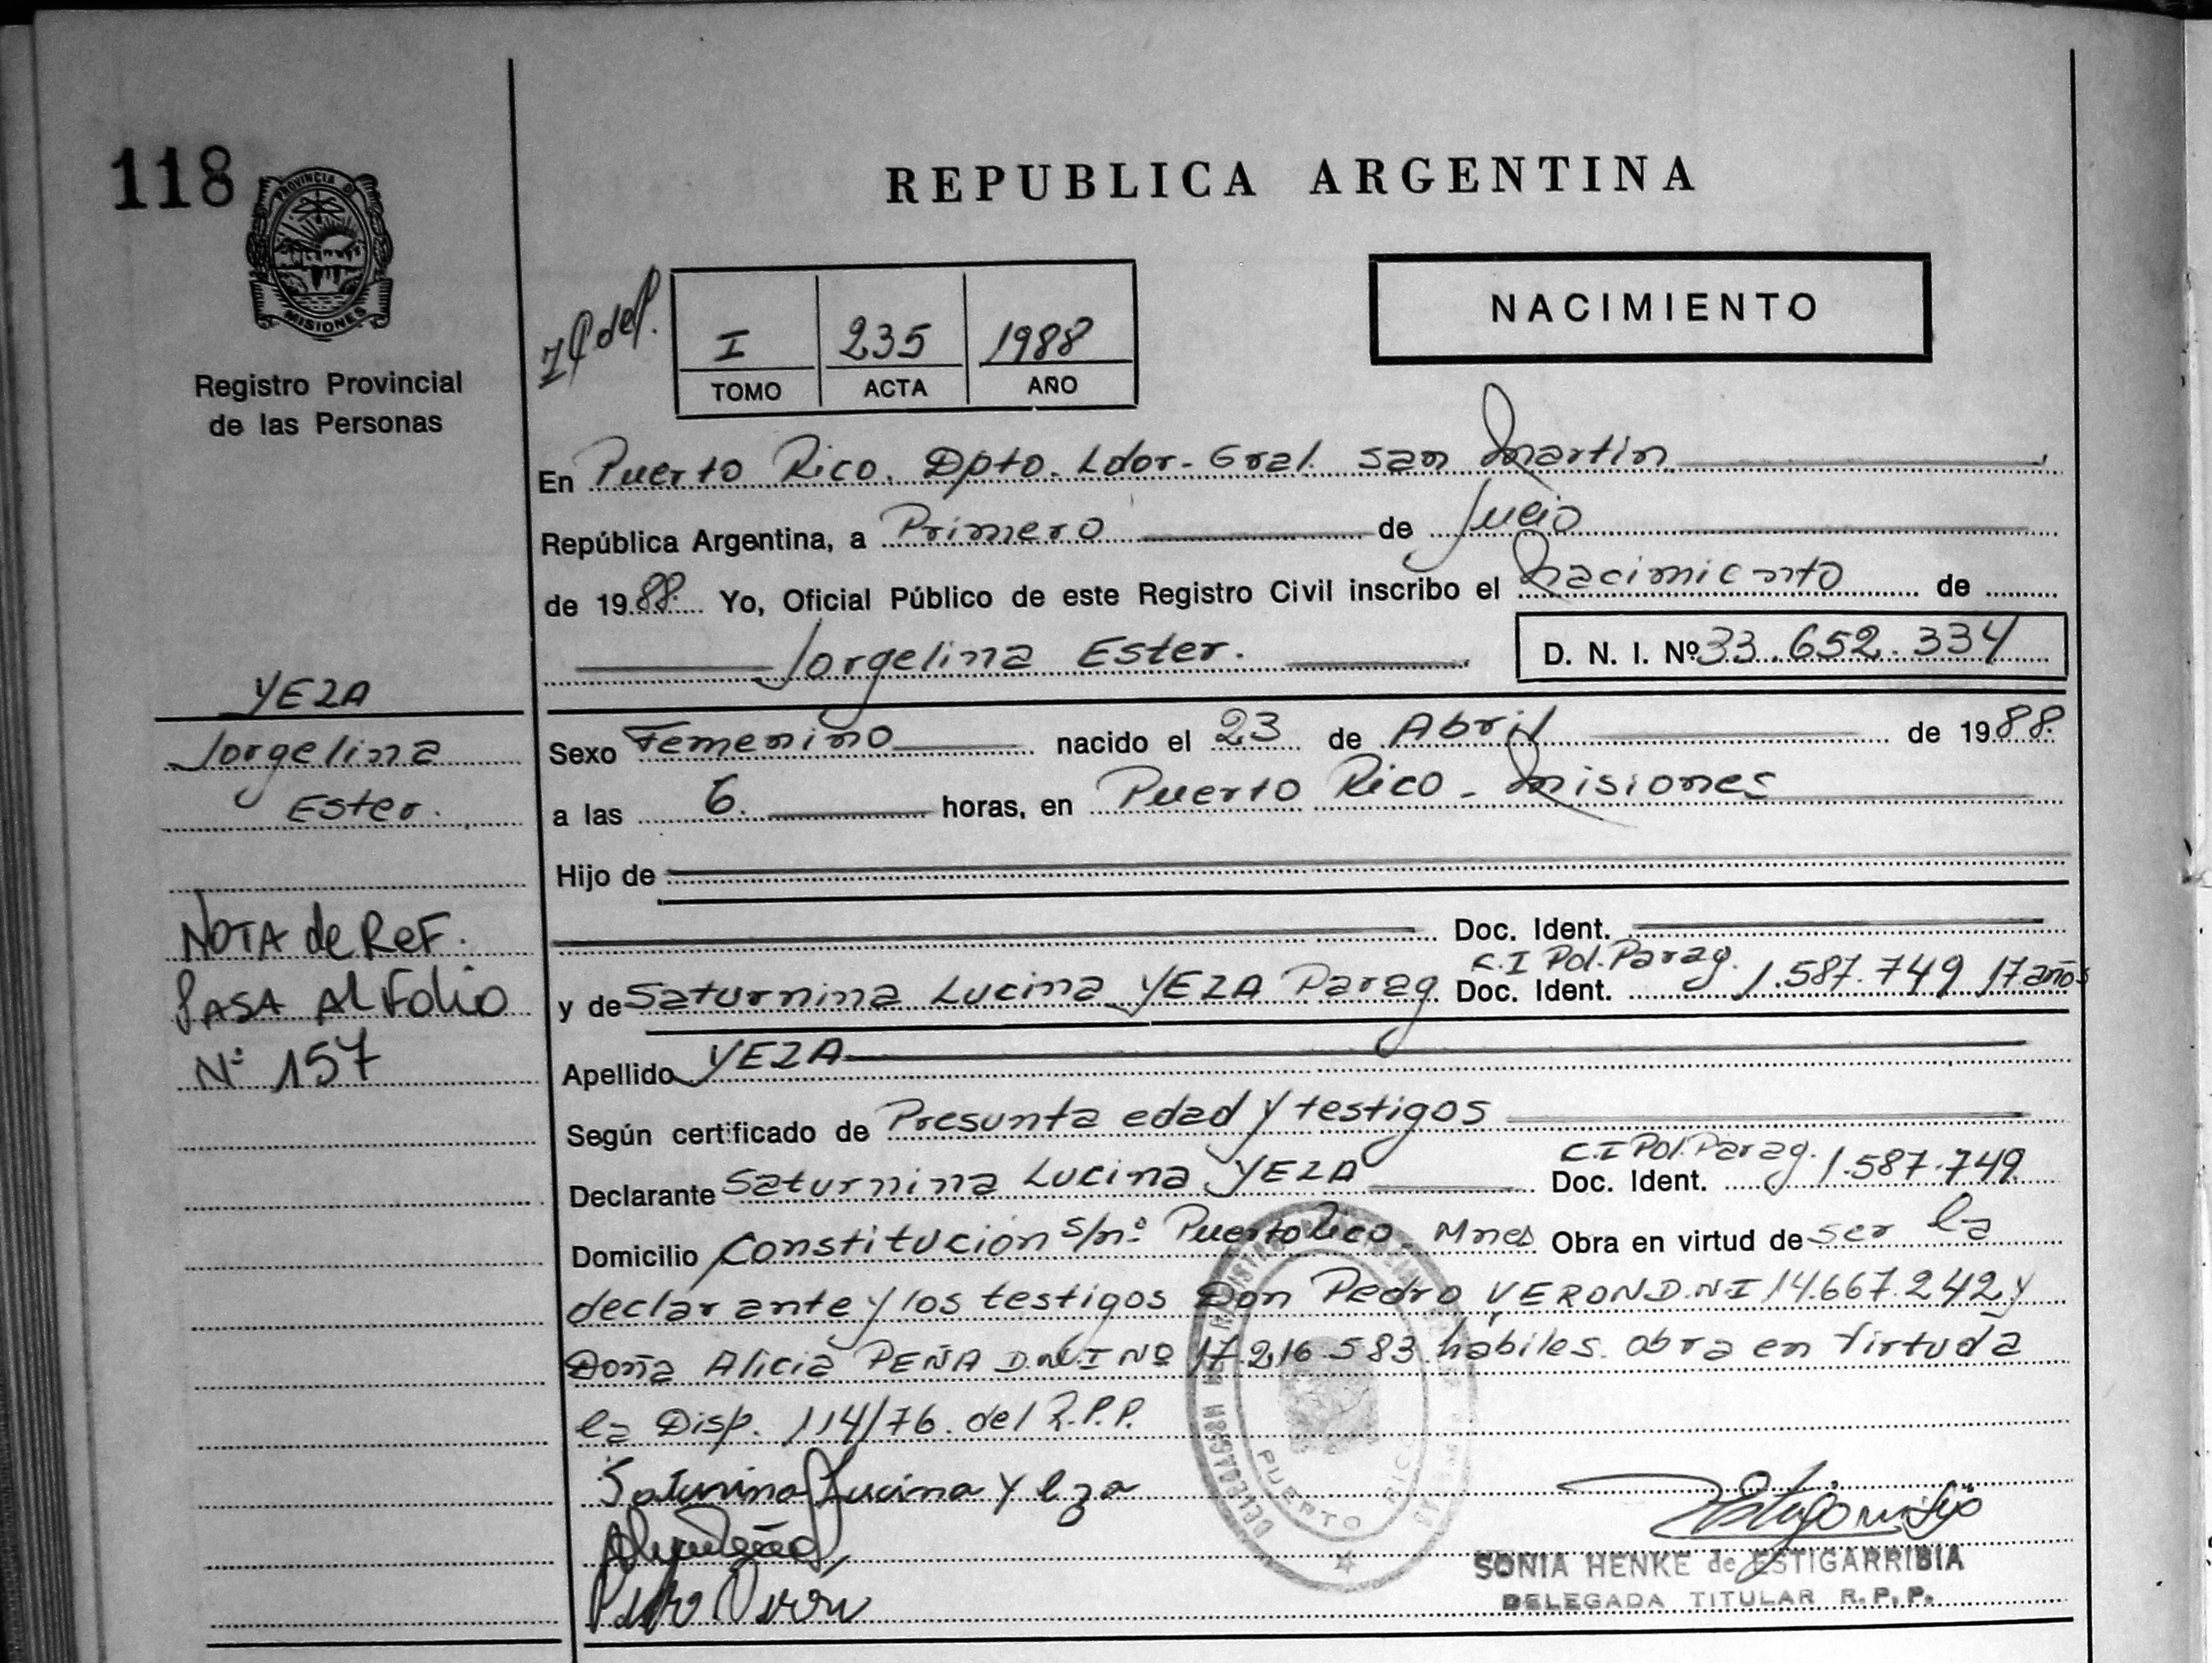 118
PROVINCIA DE
MISIONES
Registro Provincial
de las Personas
REPUBLICA ARGENTINA
NACIMIENTO
I 235 1988
TOMO ACTA AÑO
En Puerto Rico. Dpto. Ldor. Gral. San Martin
República Argentina, a Primero de Julio
de 1988. Yo, Oficial Público de este Registro Civil inscribo el Nacimiento de
Jorgelina Ester.
D. N. I. Nº 33.652.334
YEZA
Jorgelina
Ester.
NOTA de REF.
PASA AL Folio
Nº 157
Sexo Femenino nacido el 23 de Abril de 1988.
a las 6. horas, en Puerto Rico - Misiones
Hijo de
Doc. Ident.
C.I Pol. Parag.
y de Saturnina Lucina YEZA Parag Doc. Ident. 1.587.749 17 años
Apellido YEZA
Según certificado de Presunta edad y testigos
C.I Pol. Parag.
Declarante Saturnina Lucina YEZA Doc. Ident. 1.587.749
Domicilio Constitución s/nº Puerto Rico. Mnes Obra en virtud de ser la
declarante y los testigos Don Pedro VERON D.N.I 14.667.242 y
Doña Alicia PEÑA D.N.I Nº 17.216.583 hábiles. obra en Virtud a
la Disp. 114/76. del R.P.P.
Saturnina Lucina Yeza
Pedro Veron
PUERTO RICO
SONIA HENKE de ESTIGARRIBIA
DELEGADA TITULAR R.P.P.